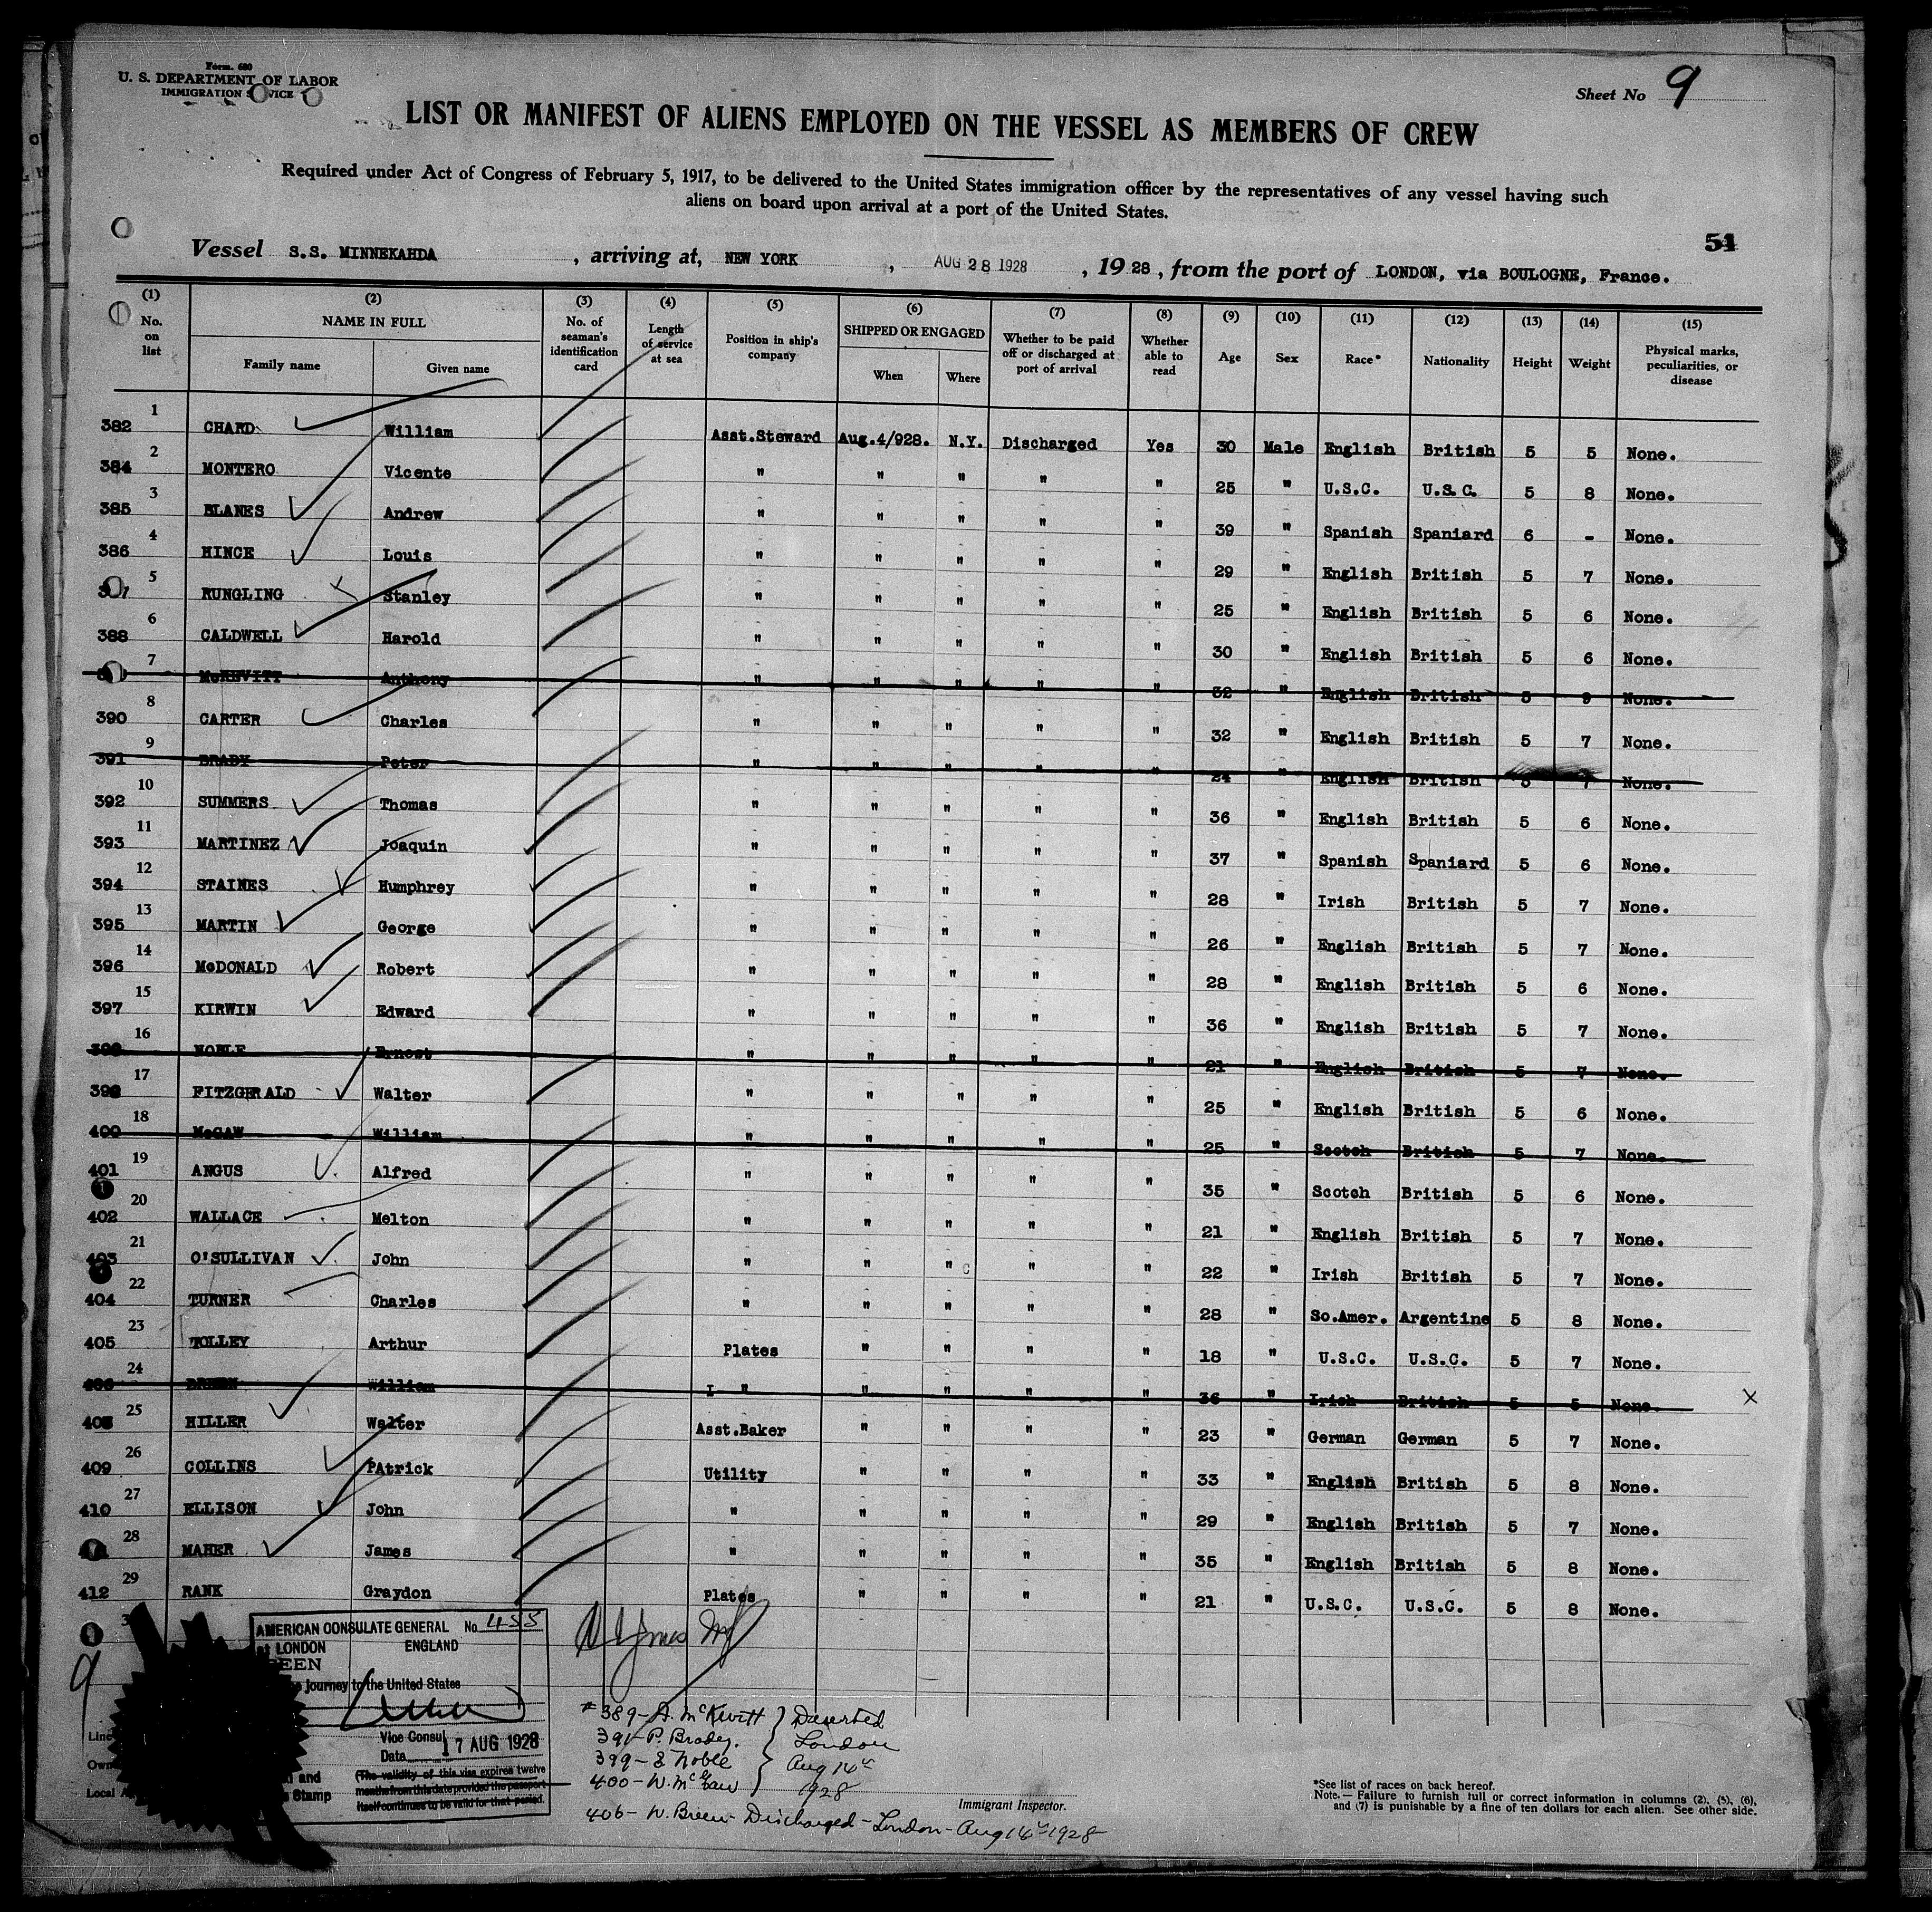 Form. 680
U. S. DEPARTMENT OF LABOR
IMMIGRATION SERVICE
Sheet No 9
LIST OR MANIFEST OF ALIENS EMPLOYED ON THE VESSEL AS MEMBERS OF CREW
Required under Act of Congress of February 5, 1917, to be delivered to the United States immigration officer by the representatives of any vessel having such
aliens on board upon arrival at a port of the United States.
51
Vessel S.S. MINNEKAHDA, arriving at, NEW YORK, AUG 28 1928, 1928, from the port of LONDON, via BOULOGNE, France.
(1) (2) (3) (4) (5) (6) (7) (8) (9) (10) (11) (12) (13) (14) (15)
No. on list NAME IN FULL Family name Given name No. of seaman's identification card Length of service at sea Position in ship's company SHIPPED OR ENGAGED When Where Whether to be paid off or discharged at port of arrival Whether able to read Age Sex Race* Nationality Height Weight Physical marks, peculiarities, or disease
382 1 CHARD William Asst.Steward Aug.4/928. N.Y. Discharged Yes 30 Male English British 5 5 None.
384 2 MONTERO Vicente " " " " " 25 " U.S.C. U.S.C. 5 8 None.
385 3 BLANES Andrew " " " " " 39 " Spanish Spaniard 6 - None.
386 4 HINCE Louis " " " " " 29 " English British 5 7 None.
5 RUNGLING Stanley " " " " " 25 " English British 5 6 None.
388 6 CALDWELL Harold " " " " " 30 " English British 5 6 None.
7 McKEVITT Anthony " " " " " 32 " English British 5 9 None.
390 8 CARTER Charles " " " " " 32 " English British 5 7 None.
391 9 BRADY Peter " " " " " 24 " English British 5 7 None.
392 10 SUMMERS Thomas " " " " " 36 " English British 5 6 None.
393 11 MARTINEZ Joaquin " " " " " 37 " Spanish Spaniard 5 6 None.
394 12 STAINES Humphrey " " " " " 28 " Irish British 5 7 None.
395 13 MARTIN George " " " " " 26 " English British 5 7 None.
396 14 McDONALD Robert " " " " " 28 " English British 5 6 None.
397 15 KIRWIN Edward " " " " " 36 " English British 5 7 None.
16 NOBLE Ernest " " " " " 21 " English British 5 7 None.
399 17 FITZGERALD Walter " " " " " 25 " English British 5 6 None.
400 18 McGAW William " " " " " 25 " Scotch British 5 7 None.
401 19 ANGUS Alfred " " " " " 35 " Scotch British 5 6 None.
402 20 WALLACE Melton " " " " " 21 " English British 5 7 None.
403 21 O'SULLIVAN John " " " " " 22 " Irish British 5 7 None.
404 22 TURNER Charles " " " " " 28 " So.Amer. Argentine 5 8 None.
405 23 TOLLEY Arthur Plates " " " " 18 " U.S.C. U.S.C. 5 7 None.
406 24 BREEN William I " " " " " 36 " Irish British 5 5 None. X
408 25 HILLER Walter Asst.Baker " " " " 23 " German German 5 7 None.
409 26 COLLINS PAtrick Utility " " " " 33 " English British 5 8 None.
410 27 ELLISON John " " " " " 29 " English British 5 7 None.
28 MAHER James " " " " " 35 " English British 5 8 None.
412 29 RANK Graydon Plates " " " " 21 " U.S.C. U.S.C. 5 8 None.
AMERICAN CONSULATE GENERAL No 455
at LONDON ENGLAND
EEN
journey to the United States
Vice Consul
Date 17 AUG 1928
(The validity of this visa expires twelve
months from this date provided the passport
itself continues to be valid for that period.
and
Stamp
9
Line
Own
Local
#389 - A. McKevitt } Deserted
391 - P. Brady. London
399 - E Noble Aug 14th
400 - W. McGaw 1928
406 - W. Breen - Discharged - London - Aug 16th 1928
Immigrant Inspector.
*See list of races on back hereof.
Note.— Failure to furnish full or correct information in columns (2), (5), (6),
and (7) is punishable by a fine of ten dollars for each alien. See other side.